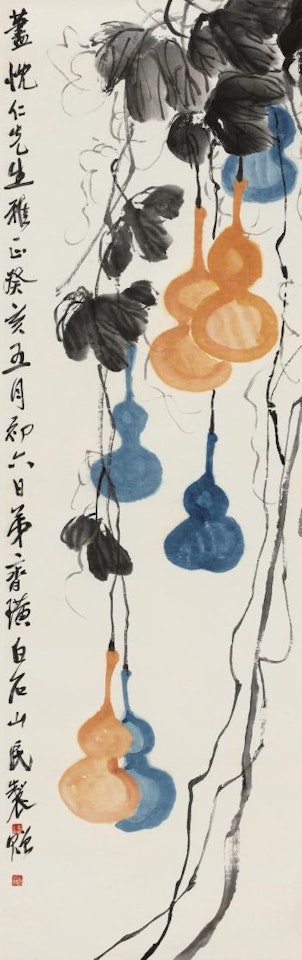 蓋忱仁先生雅正癸亥五月初六日弟齊璜白石山民製贈